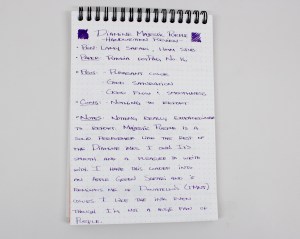 Diamine Majestic Purple
- Handwritten Review
- Pen: Lamy Safari,
- Paper: Rhodia DotPad No. 16
- Pros: - Pleasant color
- Good saturation
- Good flow & smoothness
- Cons: - Nothing to report
- Notes: Nothing really extraordinary
to report. Majestic Purple is a
solid performer like the rest of
the Diamine inks I own. It's
smooth and a pleasure to write
with. I have this loaded into
an Apple Green Safari and it
reminds me of
I like the ink even
though I'm not a huge fan of
purple.